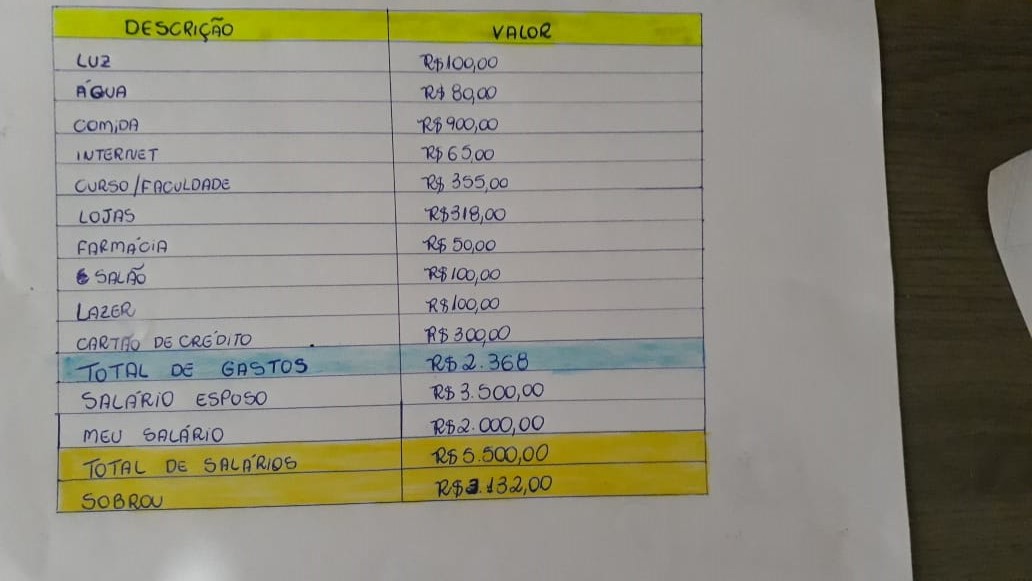 DESCRIÇÃO VALOR
LUZ R$100,00
ÁGUA R$ 80,00
COMIDA R$900,00
INTERNET R$65,00
CURSO/FACULDADE R$ 355,00
LOJAS R$318,00
FARMÁCIA R$ 50,00
SALÃO R$100,00
LAZER R$100,00
CARTÃO DE CRÉDITO R$300,00
TOTAL DE GASTOS R$2.368
SALÁRIO ESPOSO R$3.500,00
MEU SALÁRIO R$2.000,00
TOTAL DE SALÁRIOS R$5.500,00
SOBROU R$3.132,00